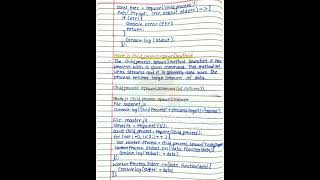 const exec = require('child_process');
exec('my.bat', (err, stdout, stderr) => {
if (err) {
console.error(err);
return;
}
console.log(stdout);
});
Node.js child_process.spawn() method
The child_process.spawn() method launches a new
process with a given command. This method returns
streams and it is generally used when the
process returns large amount of data.
child_process.spawn(command[,args][,options])
Node.js child_process.spawn() example
File: support.js
console.log("child process" + process.argv[2] + "executed.");
File: master.js
const fs = require('fs');
const child_process = require('child_process');
for (var i=0; i<3; i++) {
var worker_process = child_process.spawn('node',
worker_process.stdout.on('data', function(data) {
console.log('stdout: ' + data);
worker_process.stderr.on('data', function(data) {
console.log('stderr: ' + data);